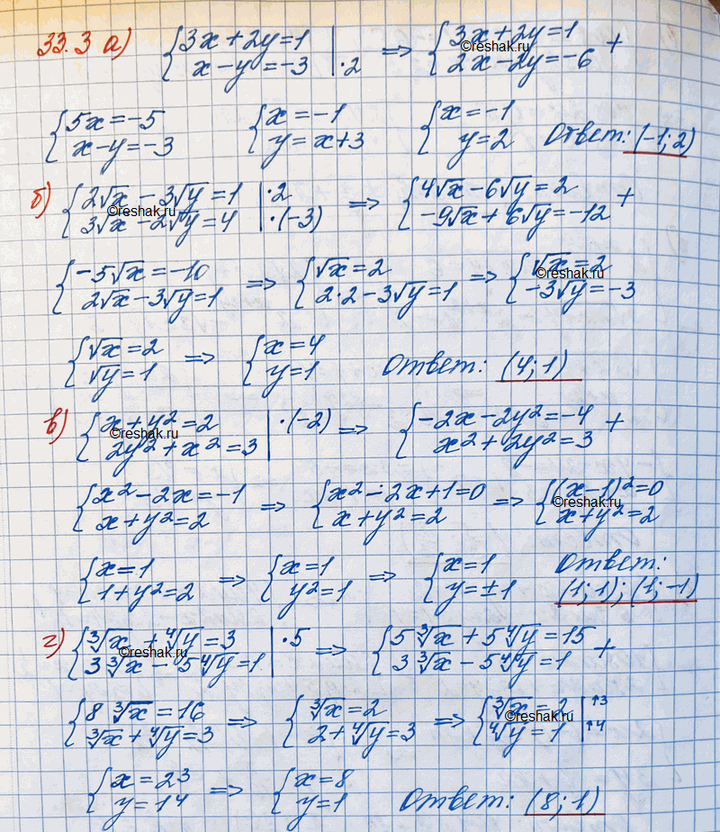 33.3 а) {3x+2y=1 |
x-y=-3 | ·2 => {3x+2y=1
2x-2y=-6 +
©reshak.ru
{5x=-5
x-y=-3 {x=-1
y=x+3 {x=-1
y=2 Ответ: (-1;2)
б) {2√x-3√y=1 | ·2
3√x-2√y=4 | ·(-3) => {4√x-6√y=2
-9√x+6√y=-12 +
©reshak.ru
{-5√x=-10
2√x-3√y=1 => {√x=2
2·2-3√y=1 => {√x=2
-3√y=-3
©reshak.ru
{√x=2
√y=1 => {x=4
y=1 Ответ: (4;1)
в) {x+y²=2 | ·(-2)
2y²+x²=3 | => {-2x-2y²=-4
x²+2y²=3 +
©reshak.ru
{x²-2x=-1
x+y²=2 => {x²-2x+1=0
x+y²=2 => {(x-1)²=0
x+y²=2
©reshak.ru
{x=1
1+y²=2 => {x=1
y²=1 => {x=1
y=±1 Ответ:
(1;1); (1;-1)
г) {∛x+∜y=3 | ·5
3∛x-5∜y=1 | => {5∛x+5∜y=15
3∛x-5∜y=1 +
©reshak.ru
{8∛x=16
∛x+∜y=3 => {∛x=2
2+∜y=3 => {∛x=2 | ↑3
∜y=1 | ↑4
©reshak.ru
{x=2³
y=1⁴ => {x=8
y=1 Ответ: (8;1)